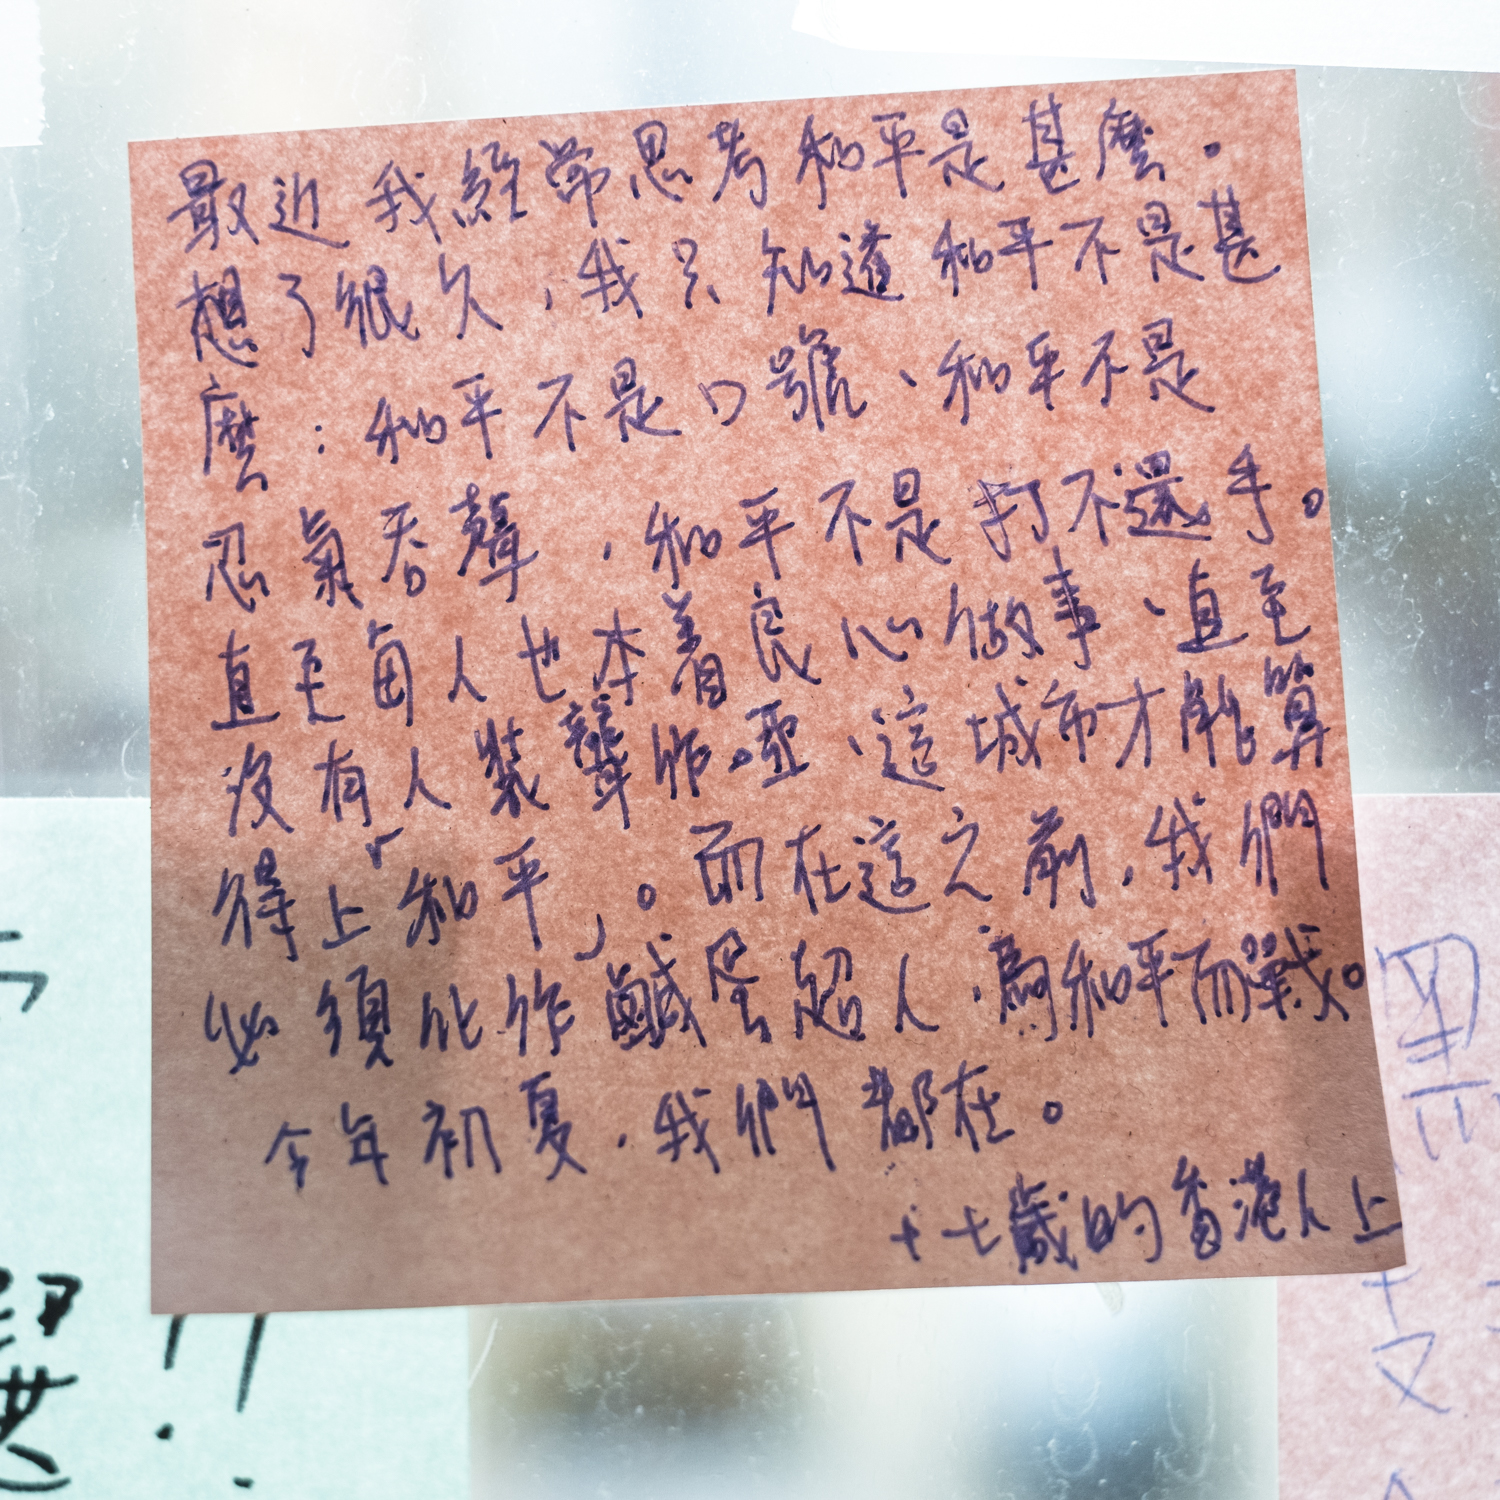 最近我經常思考和平是甚麼.
想了很久,我只知道和平不是甚
麼:和平不是口號、和平不是
忍氣吞聲,和平不是打不還手。
直至每人也本着良心做事、直至
沒有人裝聾作啞、這城市才能算
得上「和平」。而在這之前,我們
必須化作鹹蛋超人,為和平而戰。
今年初夏,我們都在。
十七歲的香港人上
!!
支